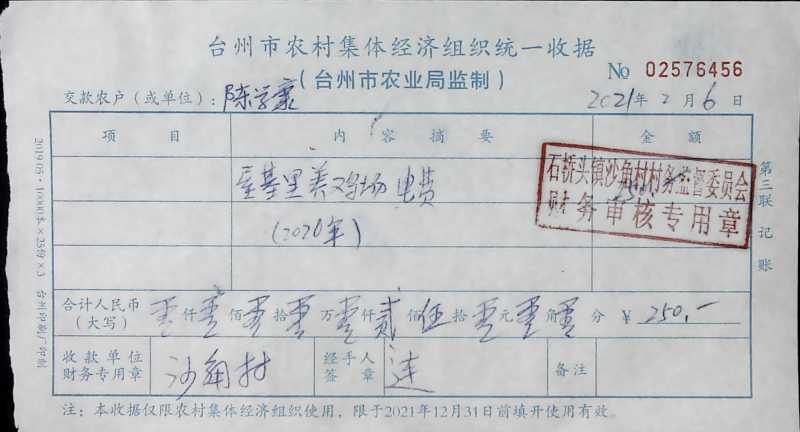 台州市农村集体经济组织统一收据
(台州市农业局监制)
No 02576456
交款农户(或单位): 陈学康 2021年2月6日
项 目 内 容 摘 要 金 额
里美鸡场 电费
(2020年)
石桥头镇沙角村村务监督委员会
财务审核专用章
合计人民币(大写) 零仟零佰零拾零万零仟贰佰伍拾零元零角零分 ¥ 250.-
收款单位财务专用章 沙角村 经手人签章 连 备注
注:本收据仅限农村集体经济组织使用,限于2021年12月31日前填开使用有效。
第三联 记账
2019.05·10000本×25份×3 台州印刷厂印制